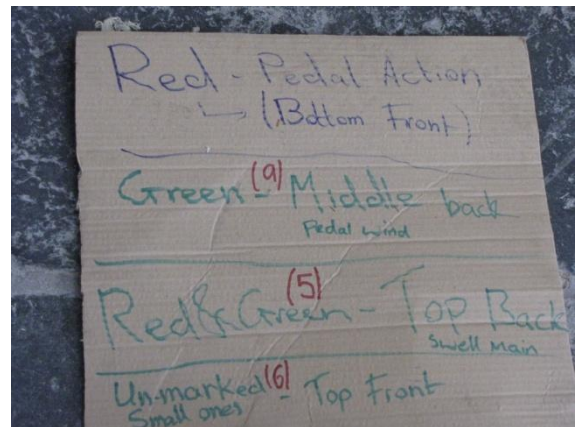 Red - Pedal Action
(Bottom Front)
Green (9) - Middle back
Pedal wind
Red & Green (5) - Top Back
Swell Main
Un-marked (6) - Top Front
Small ones